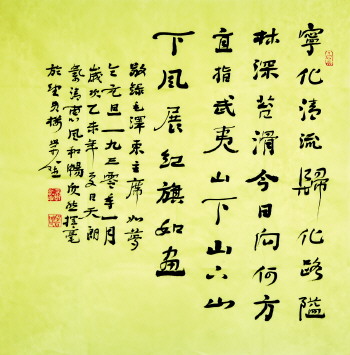 寧化清流歸化路隘
林深苔滑今日向何方
直指武夷山下山下山
下風展紅旗如畫
敬錄毛澤東主席如夢
令元旦一九三零年一月
歲次乙未年夏日天朗
氣清惠風和暢欣然揮毫
於